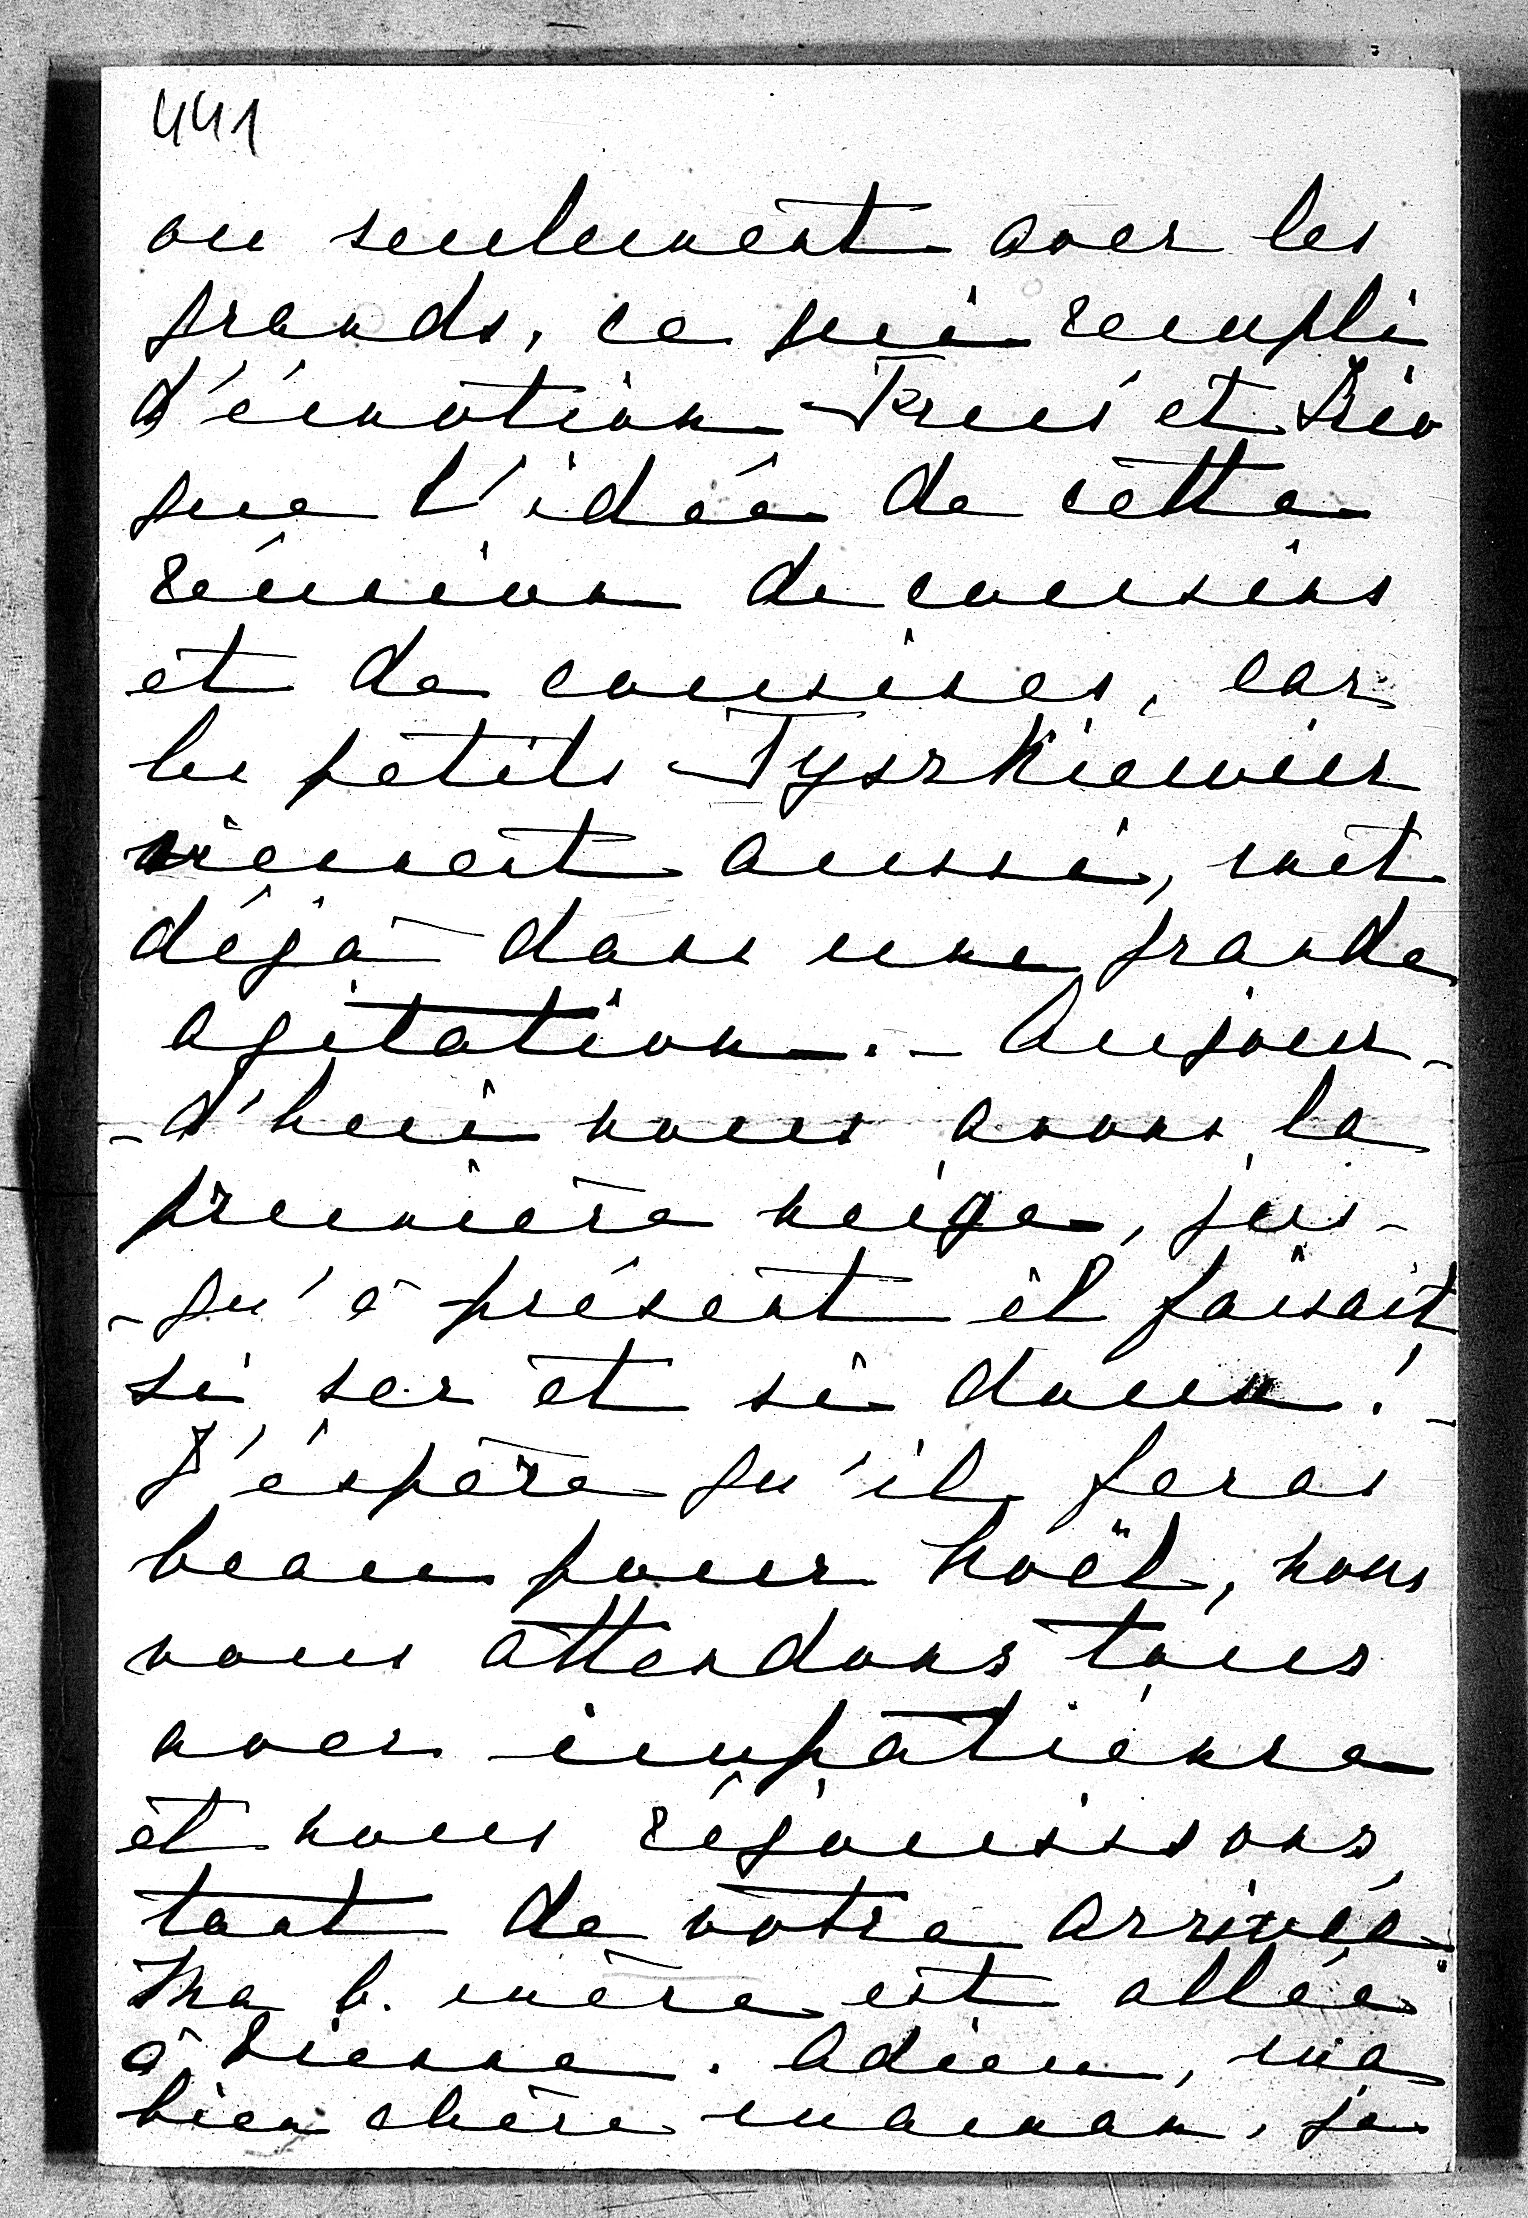 441
ou seulement avec les
grands, ce qui rempli
d'émotion et
que l'idée de cette
réunion de cousins
et de cousines, car
les petits Tyszkiewicz
viennent aussi, met
déjà dans une grande
agitation. - Aujour-
-d'hui nous avons la
première neige, jus-
-qu'à présent il faisait
si sec et si doux! -
J'éspère qu'il feras
beau pour Noël, nous
vous attendons tous
avec impatience
et nous réjouissons
tant de votre arrivée.
Ma b. mère est allée
à Vienne. Adieu, ma
bien chère maman, je